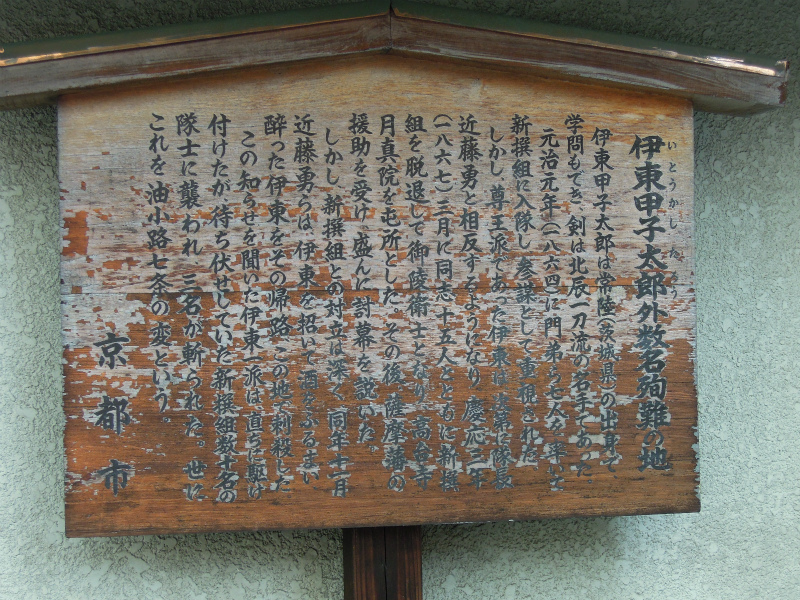 伊東甲子太郎外数名殉難の地
いとうかしたろう
伊東甲子太郎は常陸(茨城県)の出身で
学問もでき、剣は北辰一刀流の名手であった。
元治元年(一八六四)に門弟ら七人を率いて
新撰組に入隊し参謀として重視された。
しかし、尊王派であった伊東は次第に隊長
近藤勇と相反するようになり、慶応三年
(一八六七)三月に同志十五人とともに新撰
組を脱退して御陵衛士となり、高台寺
月真院を屯所とした。その後、薩摩藩の
援助を受け、盛んに討幕を説いた。
しかし、新撰組との対立は深く、同年十一月
近藤勇らは、伊東を招いて酒をふるまい
酔った伊東をその帰路、この地で刺殺した
この知らせを聞いた伊東一派は直ちに駆け
付けたが、待ち伏せしていた新撰組数十名の
隊士に襲われ、三名が斬られた。世に
これを油小路七条の変という。
京都市